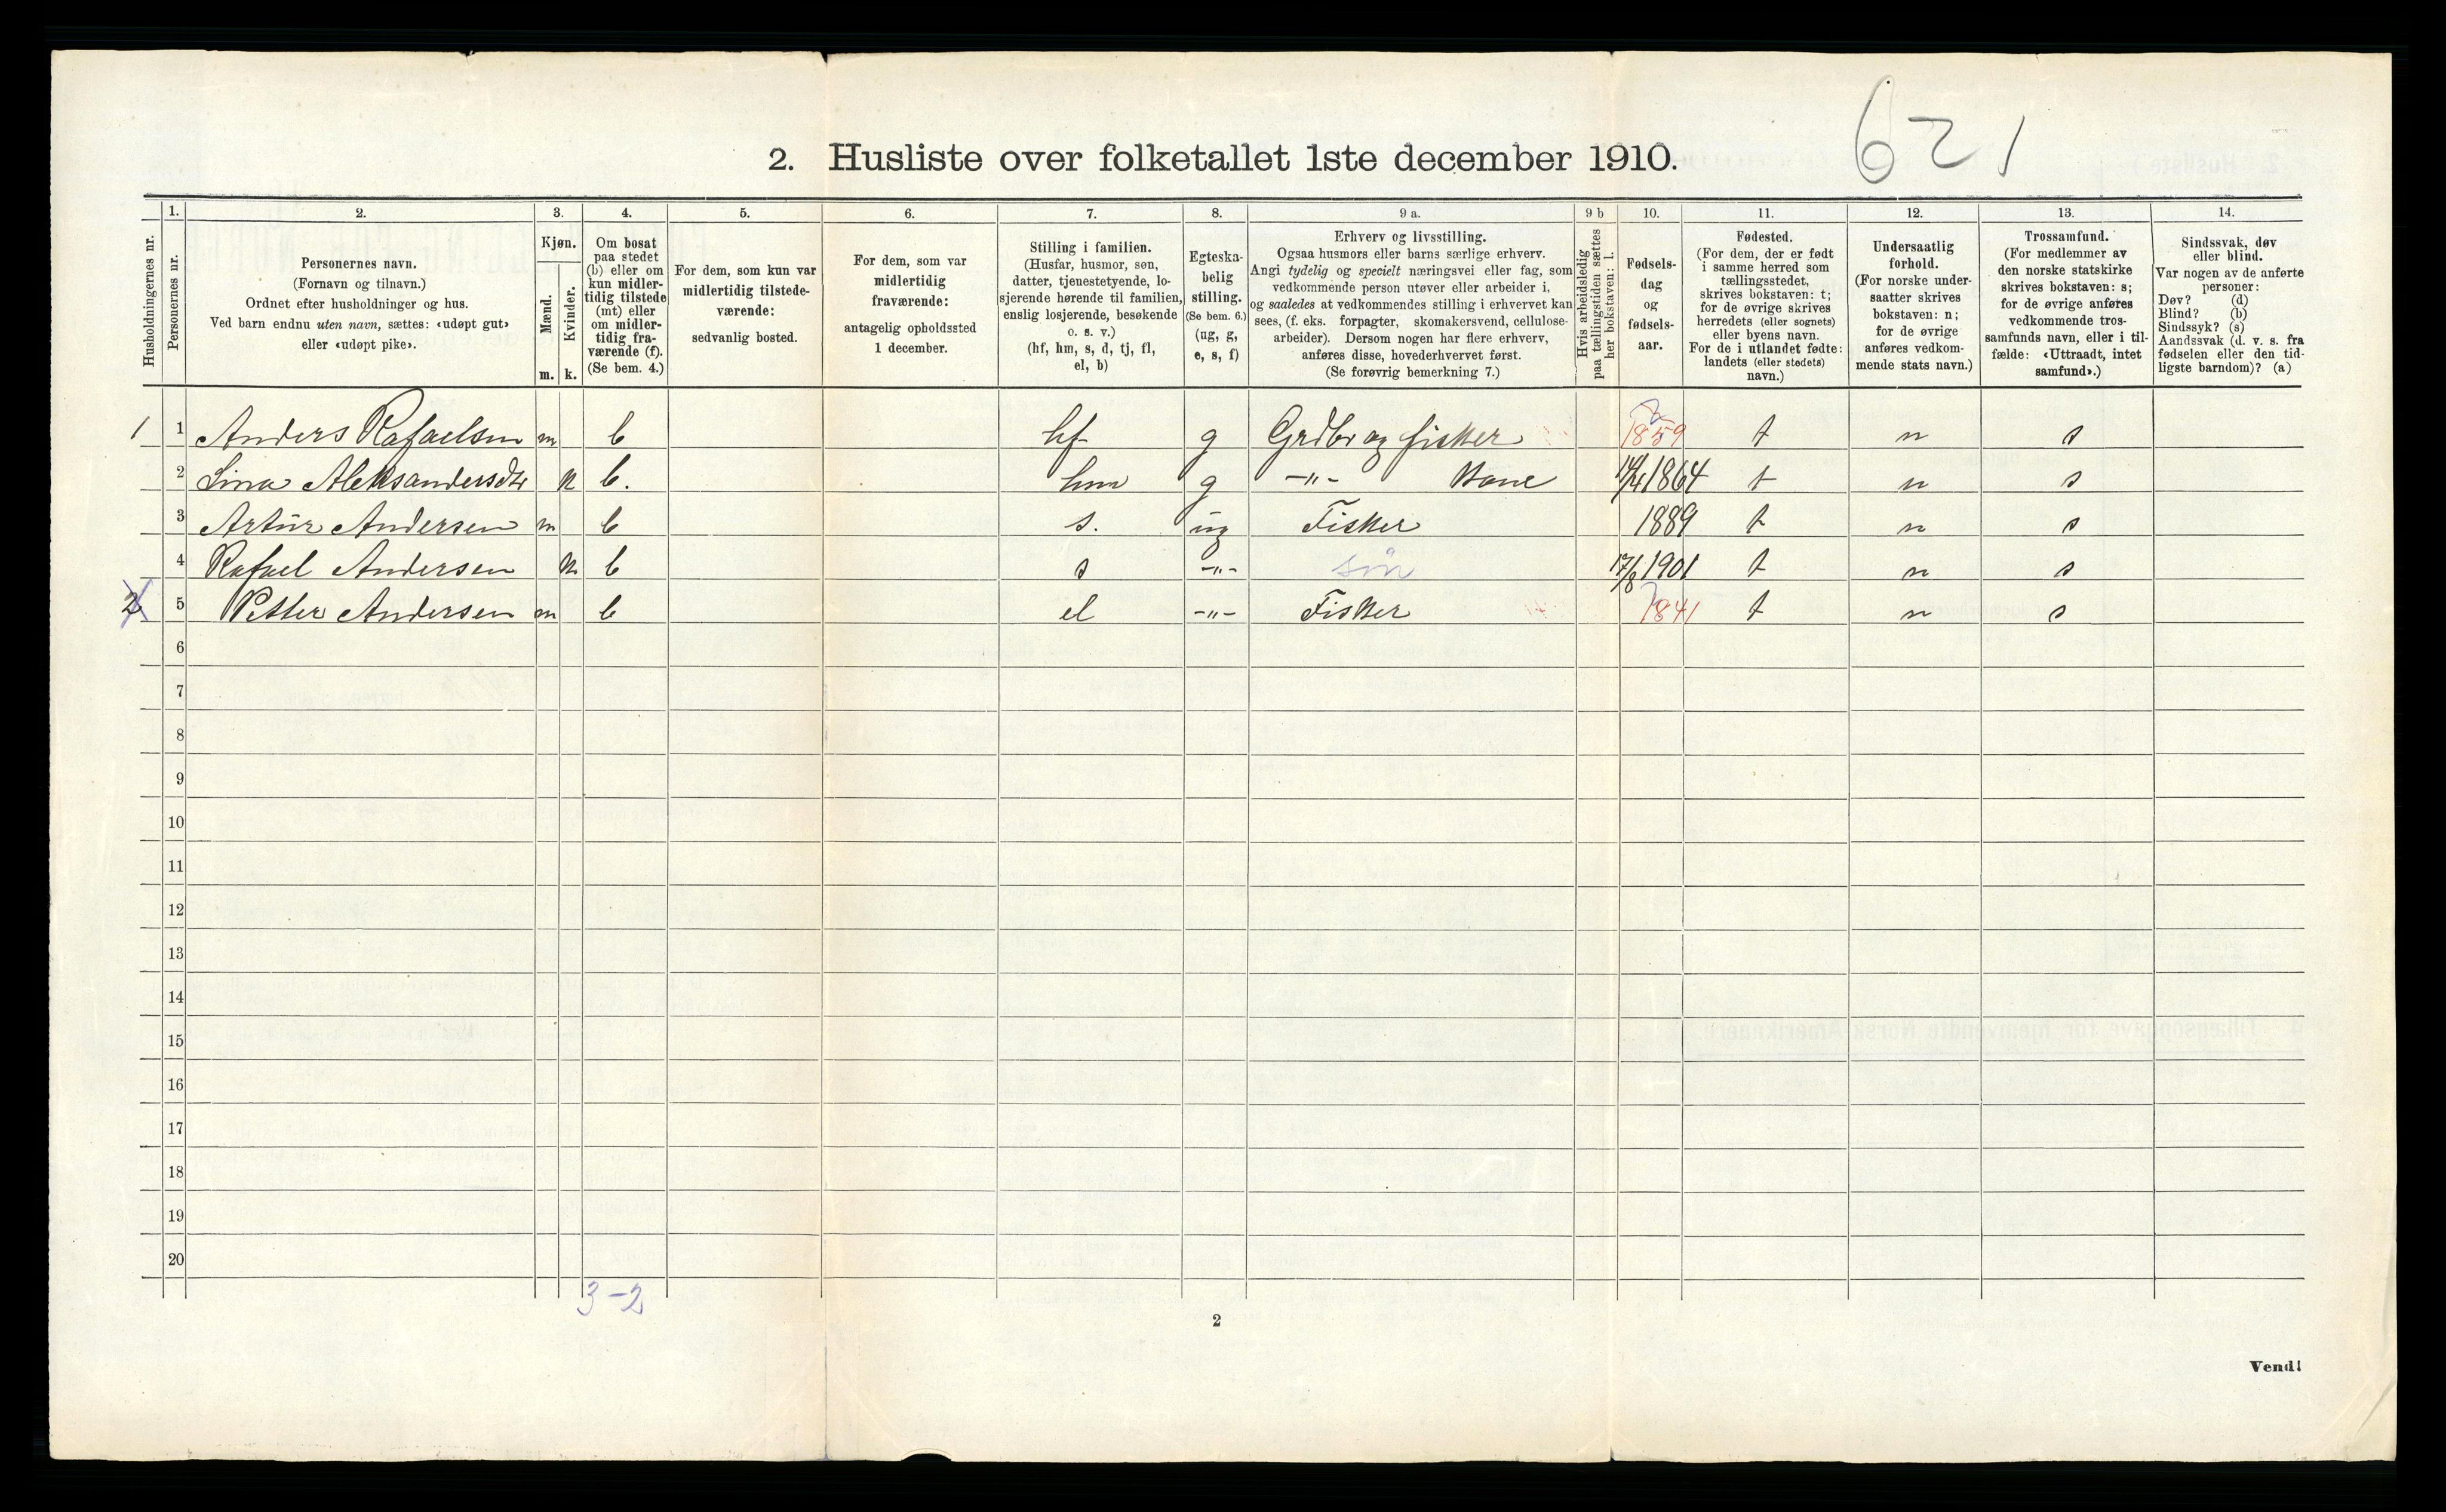 621
2. Husliste over folketallet 1ste december 1910.
Husholdningernes nr.
1.
Personernes nr.
2.
Personernes navn.
(Fornavn og tilnavn.)
Ordnet efter husholdninger og hus.
Ved barn endnu uten navn, sættes: «udøpt gut»
eller «udøpt pike».
3.
Kjøn.
Mænd.
Kvinder.
m. k.
4.
Om bosat
paa stedet
(b) eller om
kun midler-
tidig tilstede
(mt) eller
om midler-
tidig fra-
værende (f).
(Se bem. 4.)
5.
For dem, som kun var
midlertidig tilstede-
værende:
sedvanlig bosted.
6.
For dem, som var
midlertidig
fraværende:
antagelig opholdssted
1 december.
7.
Stilling i familien.
(Husfar, husmor, søn,
datter, tjenestetyende, lo-
sjerende hørende til familien,
enslig losjerende, besøkende
o. s. v.)
(hf, hm, s, d, tj, fl,
el, b)
8.
Egteska-
belig
stilling.
(Se bem. 6.)
(ug, g,
e, s, f)
9 a.
Erhverv og livsstilling.
Ogsaa husmors eller barns særlige erhverv.
Angi tydelig og specielt næringsvei eller fag, som
vedkommende person utøver eller arbeider i,
og saaledes at vedkommendes stilling i erhvervet kan
sees, (f. eks. forpagter, skomakersvend, cellulose-
arbeider). Dersom nogen har flere erhverv,
anføres disse, hovederhvervet først.
(Se forøvrig bemerkning 7.)
9 b
Hvis arbeidsledig
paa tællingstiden sættes
her bokstaven: l.
10.
Fødsels-
dag
og
fødsels-
aar.
11.
Fødested.
(For dem, der er født
i samme herred som
tællingsstedet,
skrives bokstaven: t;
for de øvrige skrives
herredets (eller sognets)
eller byens navn.
For de i utlandet fødte:
landets (eller stedets)
navn.)
12.
Undersaatlig
forhold.
(For norske under-
saatter skrives
bokstaven: n;
for de øvrige
anføres vedkom-
mende stats navn.)
13.
Trossamfund.
(For medlemmer av
den norske statskirke
skrives bokstaven: s;
for de øvrige anføres
vedkommende tros-
samfunds navn, eller i til-
fælde: «Uttraadt, intet
samfund».)
14.
Sindssvak, døv
eller blind.
Var nogen av de anførte
personer:
Døv? (d)
Blind? (b)
Sindssyk? (s)
Aandssvak (d. v. s. fra
fødselen eller den tid-
ligste barndom)? (a)
1 1 Anders Rafaelsen m b hf g Grdbr og fisker 1859 t n s
2 Lina Aleksandersdtr k b. hm g -"- kone 14/4 1864 t n s
3 Artur Andersen m b s. ug Fisker 1889 t n s
4 Rafael Andersen k b s -"- søn 17/8 1901 t n s
2 5 Petter Andersen m b el -"- Fisker 1841 t n s
6
7
8
9
10
11
12
13
14
15
16
17
18
19
20
3-2
2
Vend!